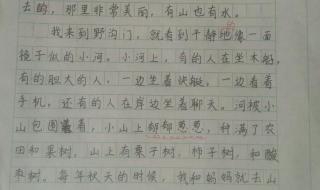 去的，那里非常美丽，有山也有水。
我来到野沟门，就看到干静地像一面
镜子似的小河。小河上，有的人在坐木船，
有的胆大的人，一边坐着快艇，一边看着
手机，还有的人在岸边坐着聊天。河被小
山包围着，小山上郁郁葱葱，种满了农
田和果树。山上有栗子树，柿子树，和酸
枣树。每年秋天的时候，我和妈妈就去山